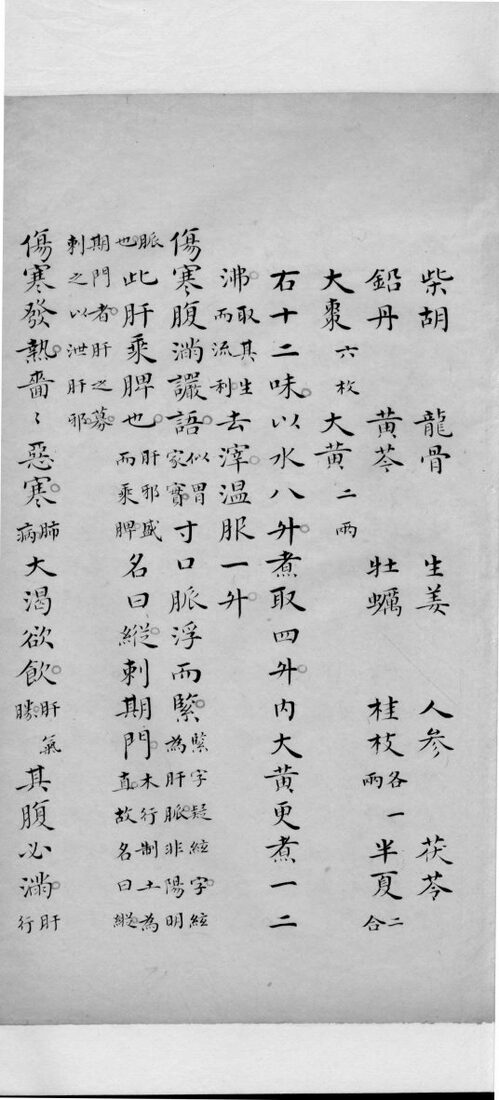 柴胡 龍骨 生姜 人参 茯苓
鉛丹 黄芩 牡蠣 桂枝各一兩 半夏二合
大棗六枚 大黄二兩
右十二味以水八升煮取四升内大黄更煮一二
沸取其生而流利去滓温服一升
傷寒腹満讝語似胃家實寸口脈浮而緊緊字疑絃字絃為肝脈非陽明
脈也此肝乘脾也肝邪盛而乘脾名曰縱刺期門木行制土為直故名曰縱
期門者肝之募
刺之以泄肝邪
傷寒發熱嗇〻惡寒肺病大渴欲飲肝氣勝其腹必満肝行